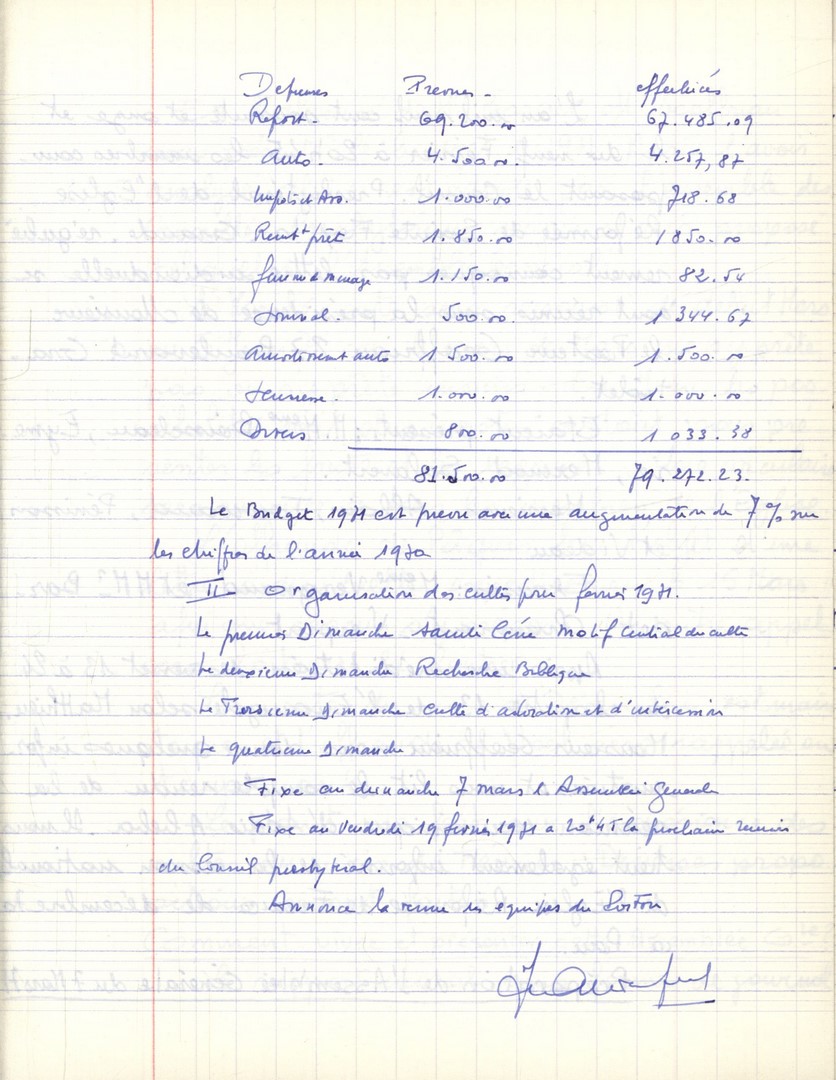 Depenses Prevues - effectuées
Report - 69.200.00 67.485.09
Auto. 4.500 00. 4.257,87
Impots et Ass. 1.000.00 718.68
Remt prêt 1.850.00 1850.00
femme de menage 1.150.00 82.54
Journal. 500.00 1 344.67
Amortissement auto 1 500.00 1.500.00
Jeunesse. 1.000.00 1.000.00
Divers 800.00 1 033.38
81.500.00 79.272.23.
Le Budget 1971 est prevu avec une augmentation de 7% sur
les chiffres de l'année 1970
II - Organisation des cultes pour fevrier 1971.
Le premier Dimanche sainte Cène motif Central du culte
Le deuxieme Dimanche Recherche Biblique
Le Troisieme Dimanche culte d'adoration et d'intercession
Le quatrieme Dimanche
Fixe au dimanche 7 mars l'Assemblée Generale
Fixe au Vendredi 19 fevrier 1971 a 20h45 la prochaine reunion
du Conseil presbyteral.
Annonce la venue des equipes du